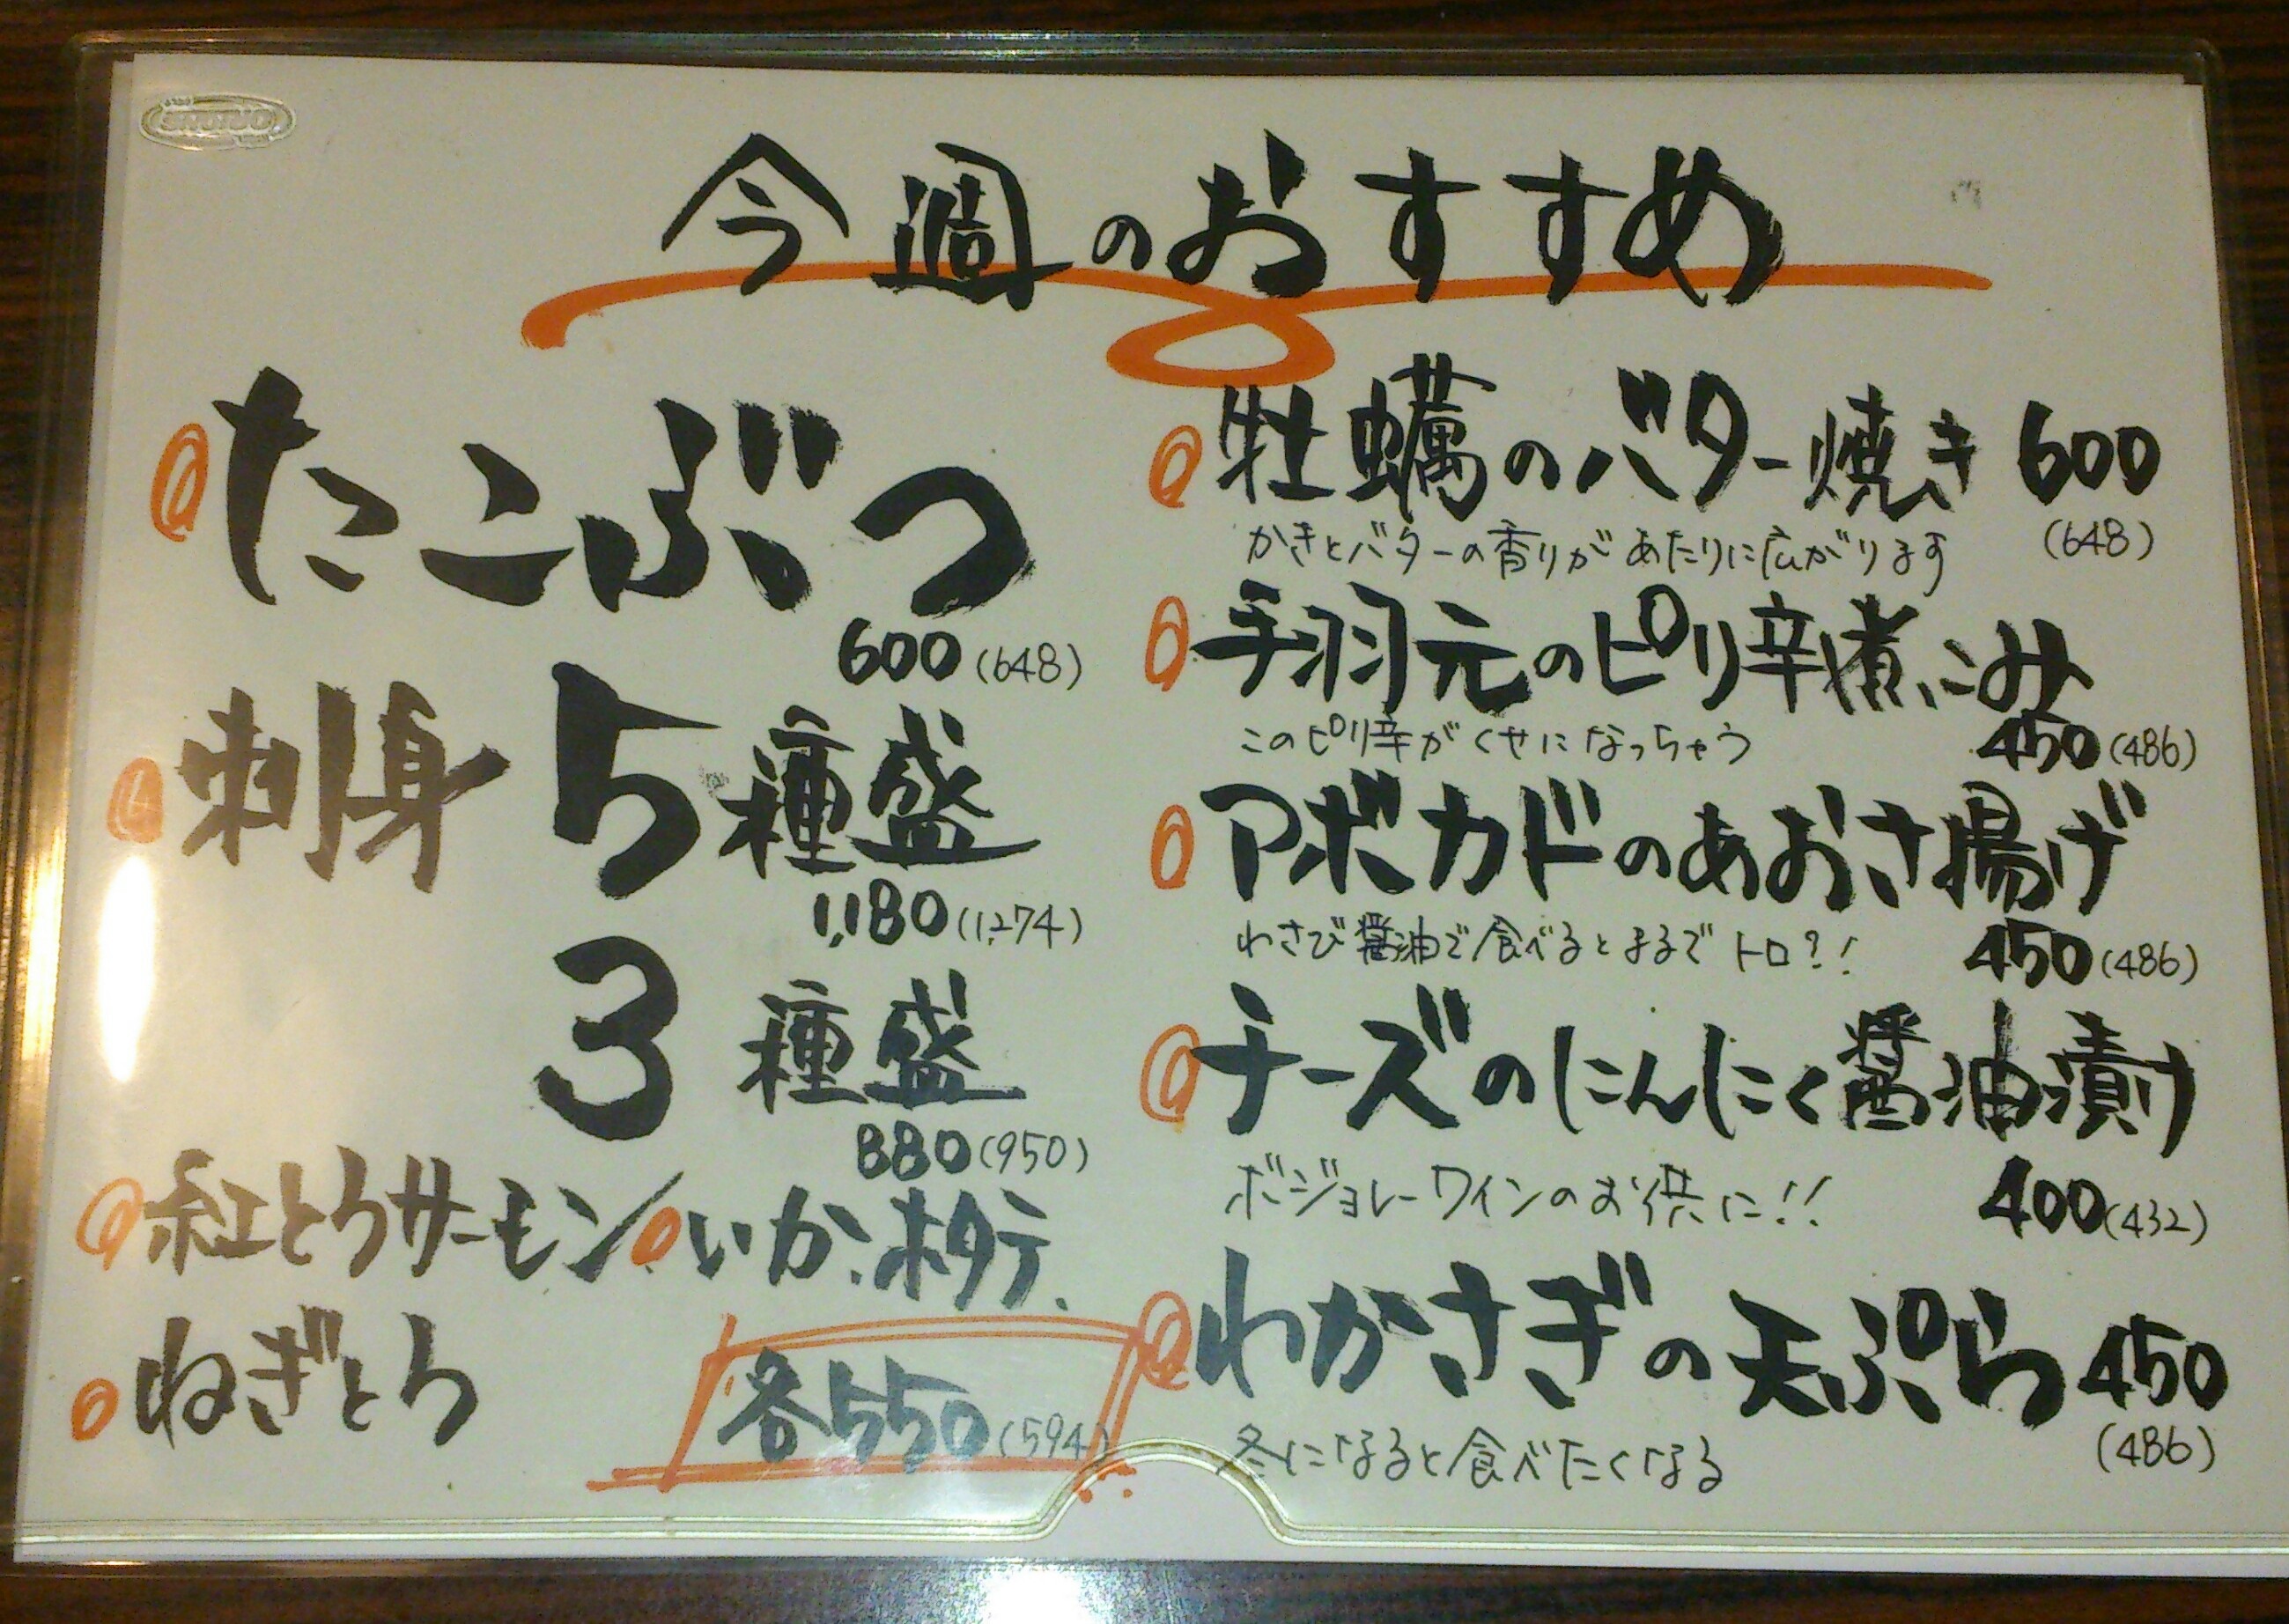 今週のおすすめ
たこぶつ
600(648)
刺身5種盛
1,180(1,274)
3種盛
880(950)
紅とろサーモン いか、ホタテ
ねぎとろ
各550(594)
牡蠣のバター焼き 600
(648)
かきとバターの香りがあたりに広がります
手羽元のピリ辛煮こみ
このピリ辛がくせになっちゃう 450(486)
アボカドのあおさ揚げ
わさび醤油で食べるとまるでトロ?! 450(486)
チーズのにんにく醤油漬け
ボジョレーワインのお供に!! 400(432)
わかさぎの天ぷら 450
(486)
冬になると食べたくなる